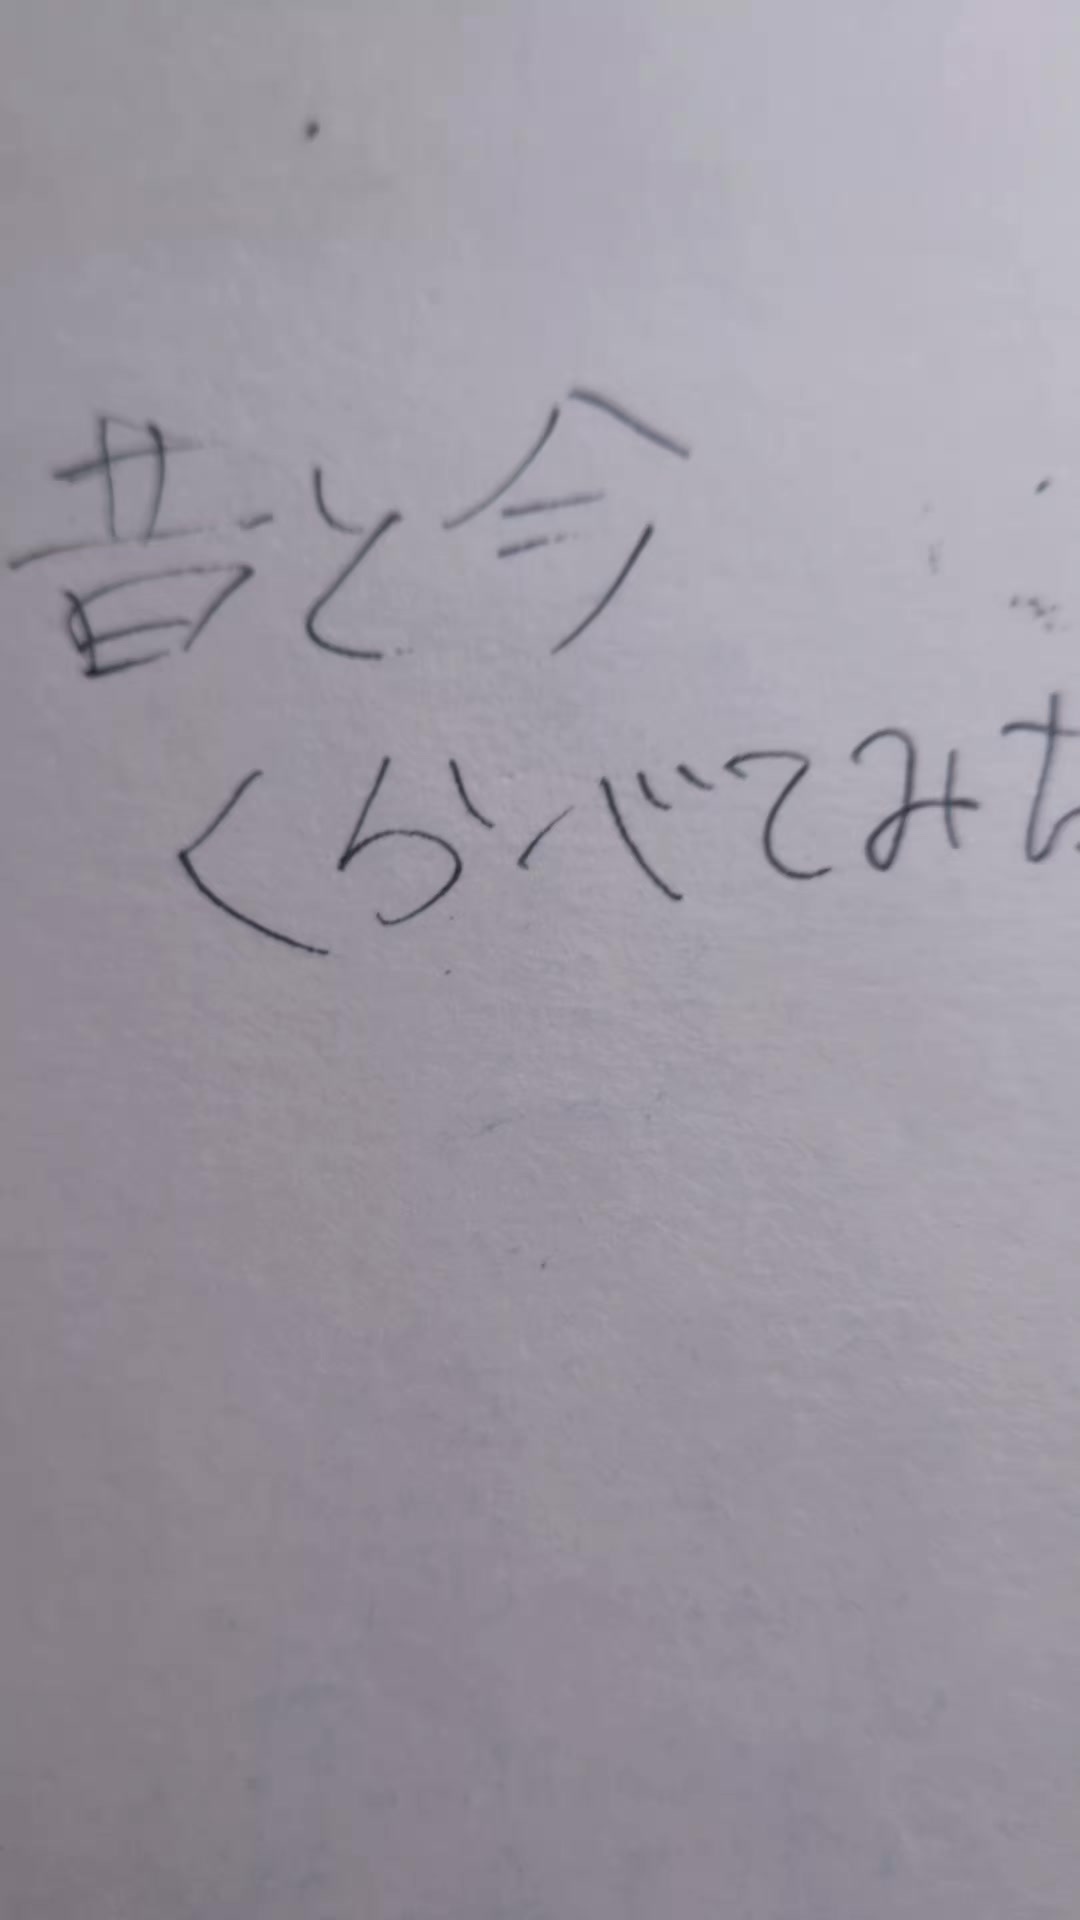 昔と今
くらべてみた